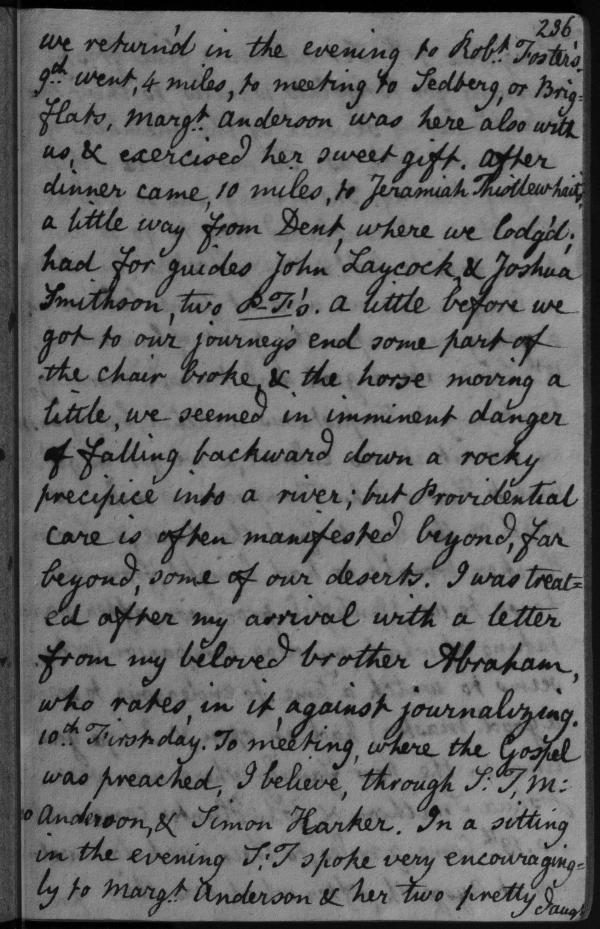 236
we return'd in the evening to Robt. Foster's.
9th went, 4 miles, to meeting to Sedberg, or Brig=
flats, Margt. Anderson was here also with
us, & exercised her sweet gift. After
dinner came, 10 miles, to Jeramiah Thistlewhait's,
a little way from Dent, where we lodg'd;
had for guides John Laycock, & Joshua
Smithson, two P–F's. a little before we
got to our journey's end some part of
the chair broke, & the horse moving a
little, we seemed in imminent danger
of falling backward down a rocky
precipice into a river; but Providential
care is often manifested beyond, far
beyond, some of our deserts. I was treat=
ed after my arrival with a letter
from my beloved brother Abraham,
who rates, in it, against journalizing.
10th First-day. To meeting, where the Gospel
was preached, I believe, through S: T, M:
Anderson, & Simon Harker. In a sitting
in the evening S: T spoke very encouraging=
ly to Margt. Anderson & her two pretty daugh